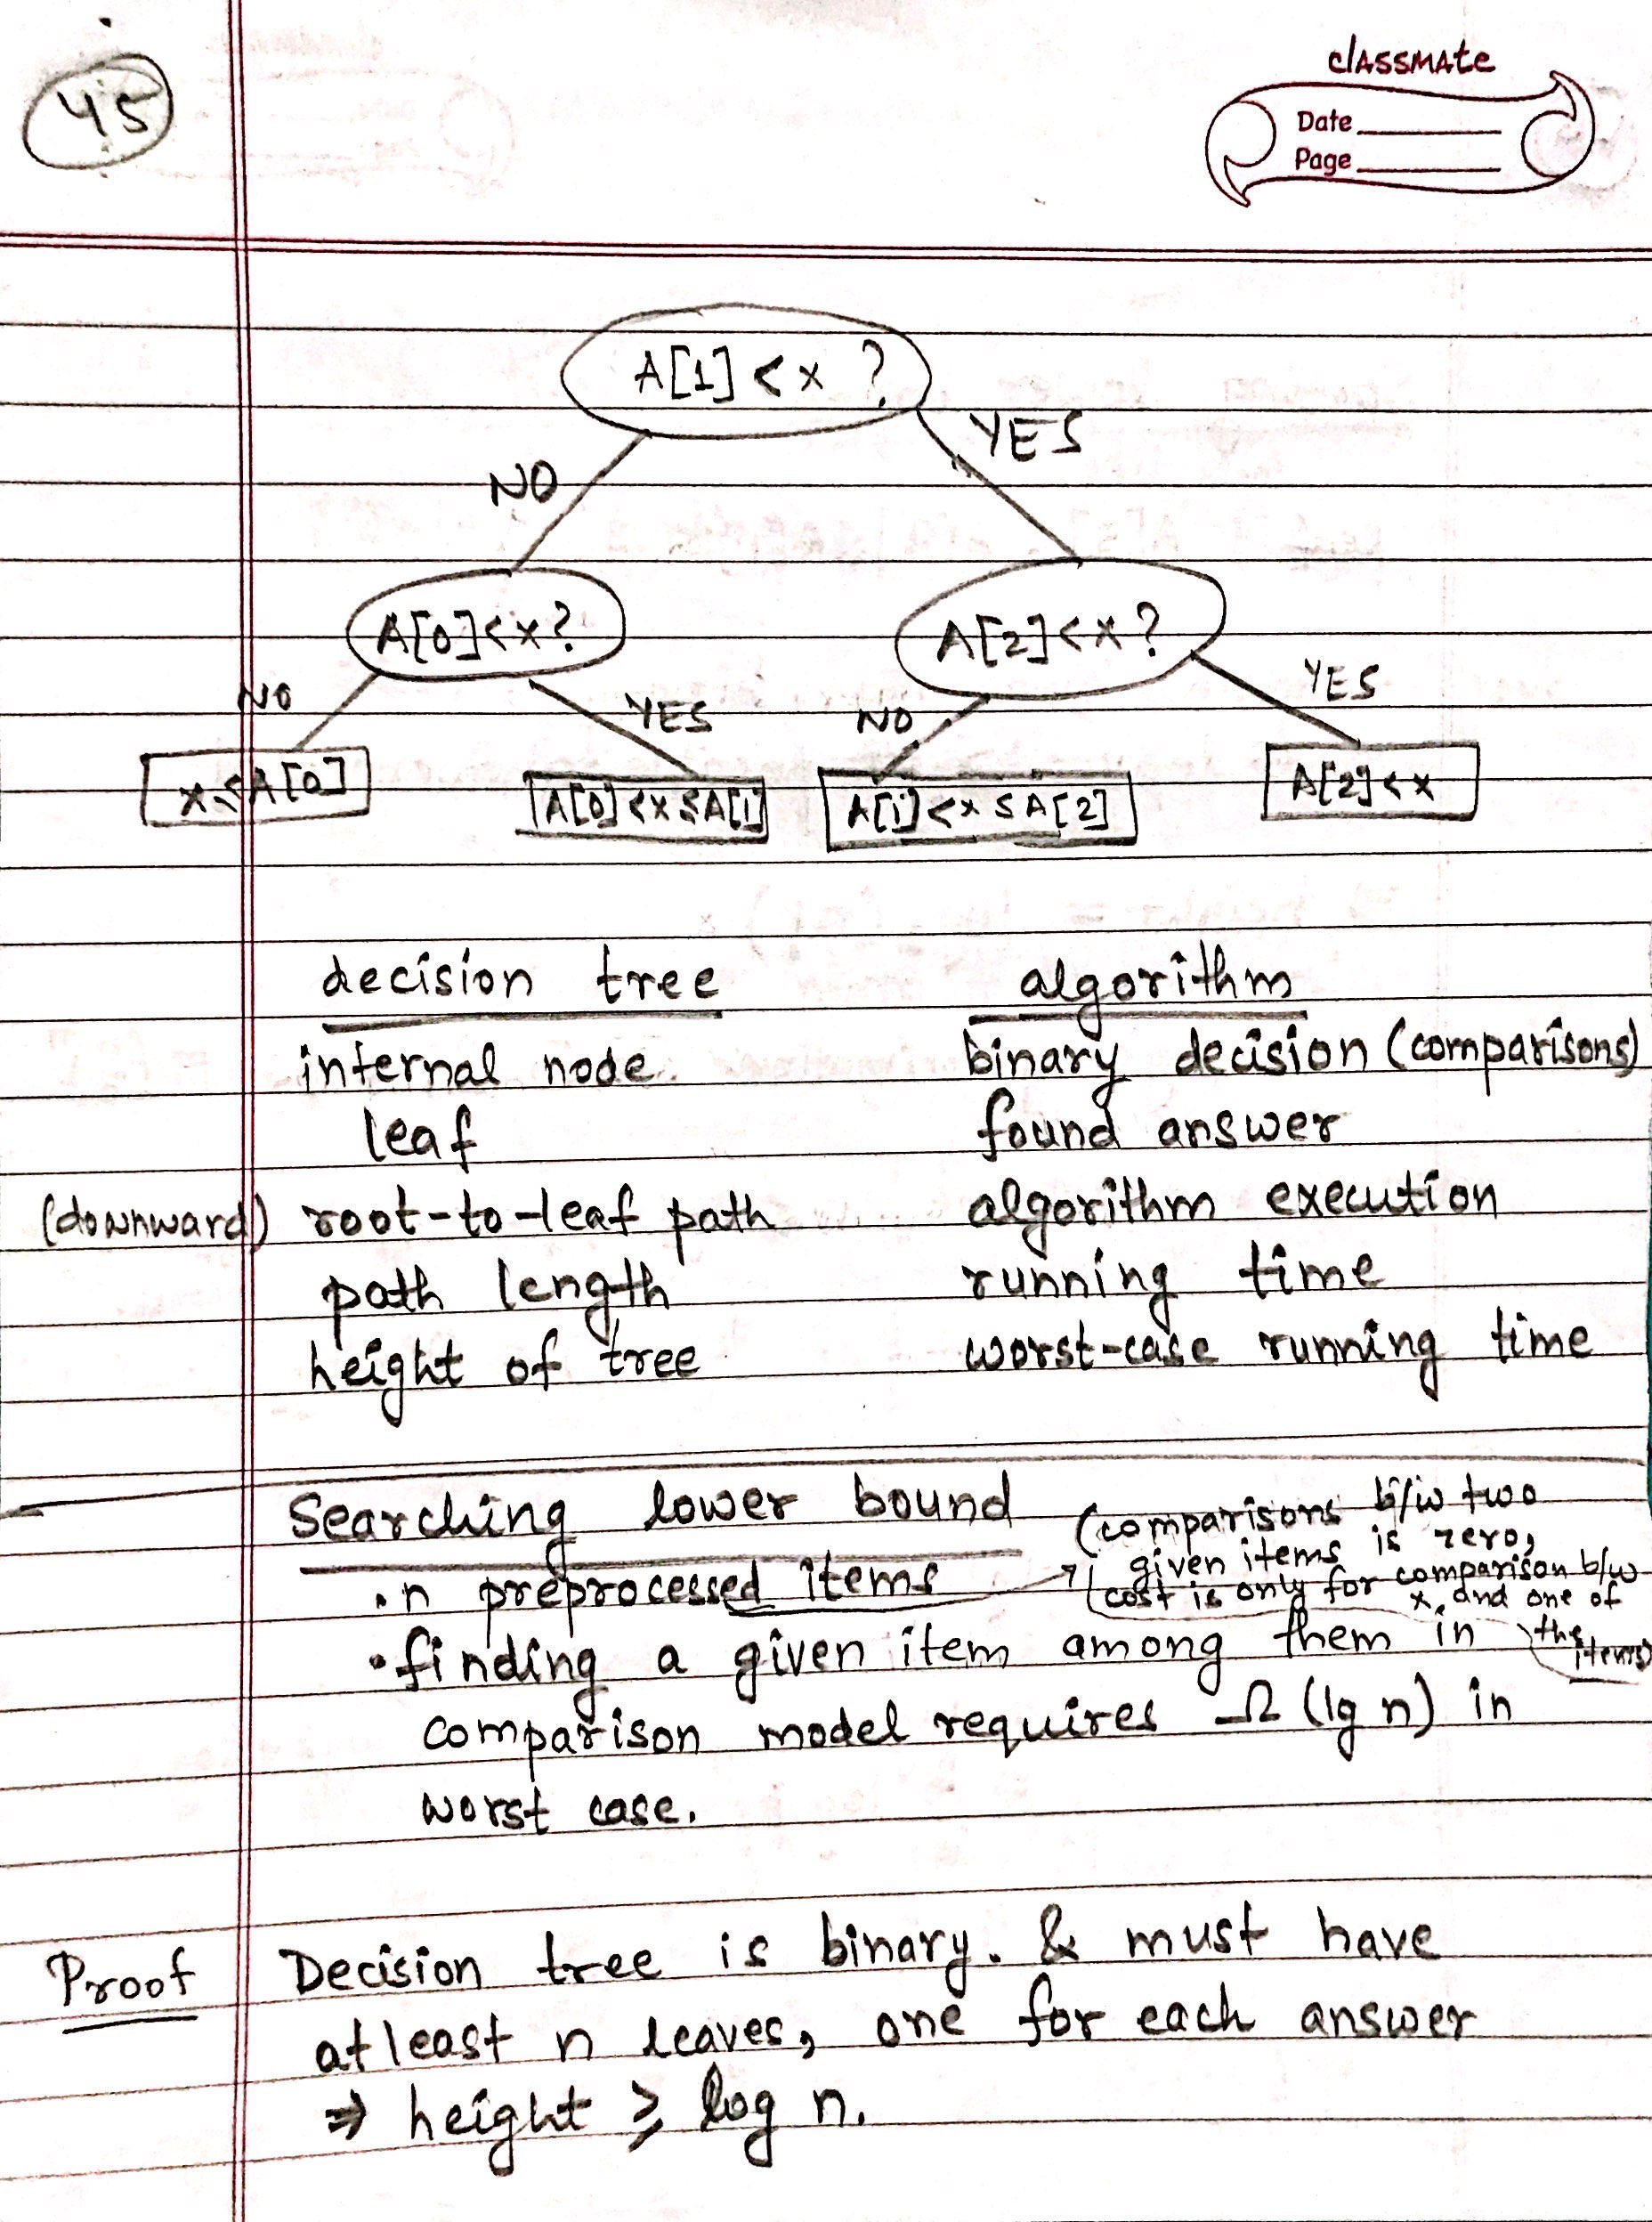 45
classmate
Date
Page
A[1] < x ?
NO YES
A[0] < x ? A[2] < x ?
NO YES NO YES
x ≤ A[0] A[0] < x ≤ A[1] A[1] < x ≤ A[2] A[2] < x
decision tree algorithm
internal node binary decision (comparisons)
leaf found answer
(downward) root-to-leaf path algorithm execution
path length running time
height of tree worst-case running time
Searching lower bound
(comparisons b/w two
given items is zero,
cost is only for comparison b/w
x and one of
the
items)
• n preprocessed items
• finding a given item among them in
comparison model requires Ω (lg n) in
worst case.
Proof Decision tree is binary. & must have
atleast n leaves, one for each answer
⇒ height ≥ log n.